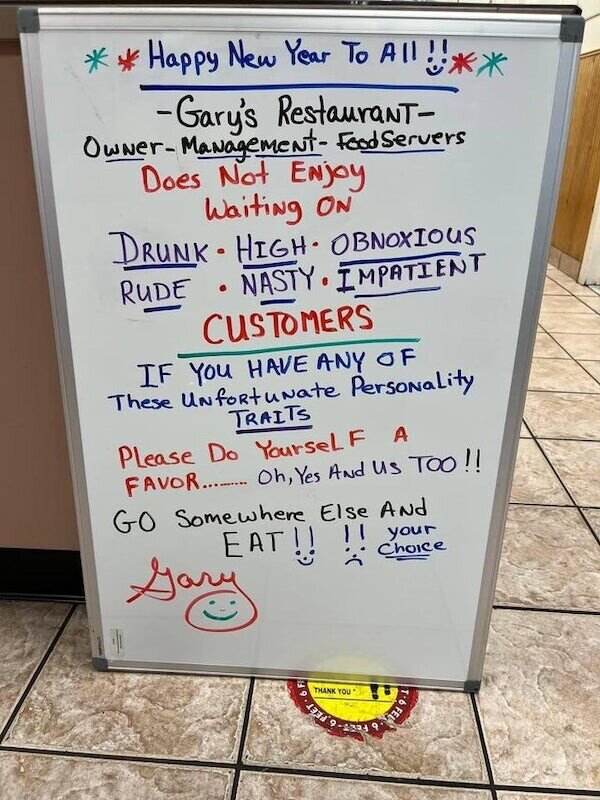 * * Happy New Year To All !! * *
- Gary's Restaurant -
Owner - Management - Food Servers
Does Not Enjoy
Waiting On
DRUNK • HIGH • OBNOXIOUS
RUDE • NASTY • IMPATIENT
CUSTOMERS
IF YOU HAVE ANY OF
These Unfortunate Personality
TRAITS
Please Do Yourself A
FAVOR......... Oh, Yes And Us Too !!
GO Somewhere Else And
EAT !! !! your
Choice
Gary
THANK YOU
6 FEET